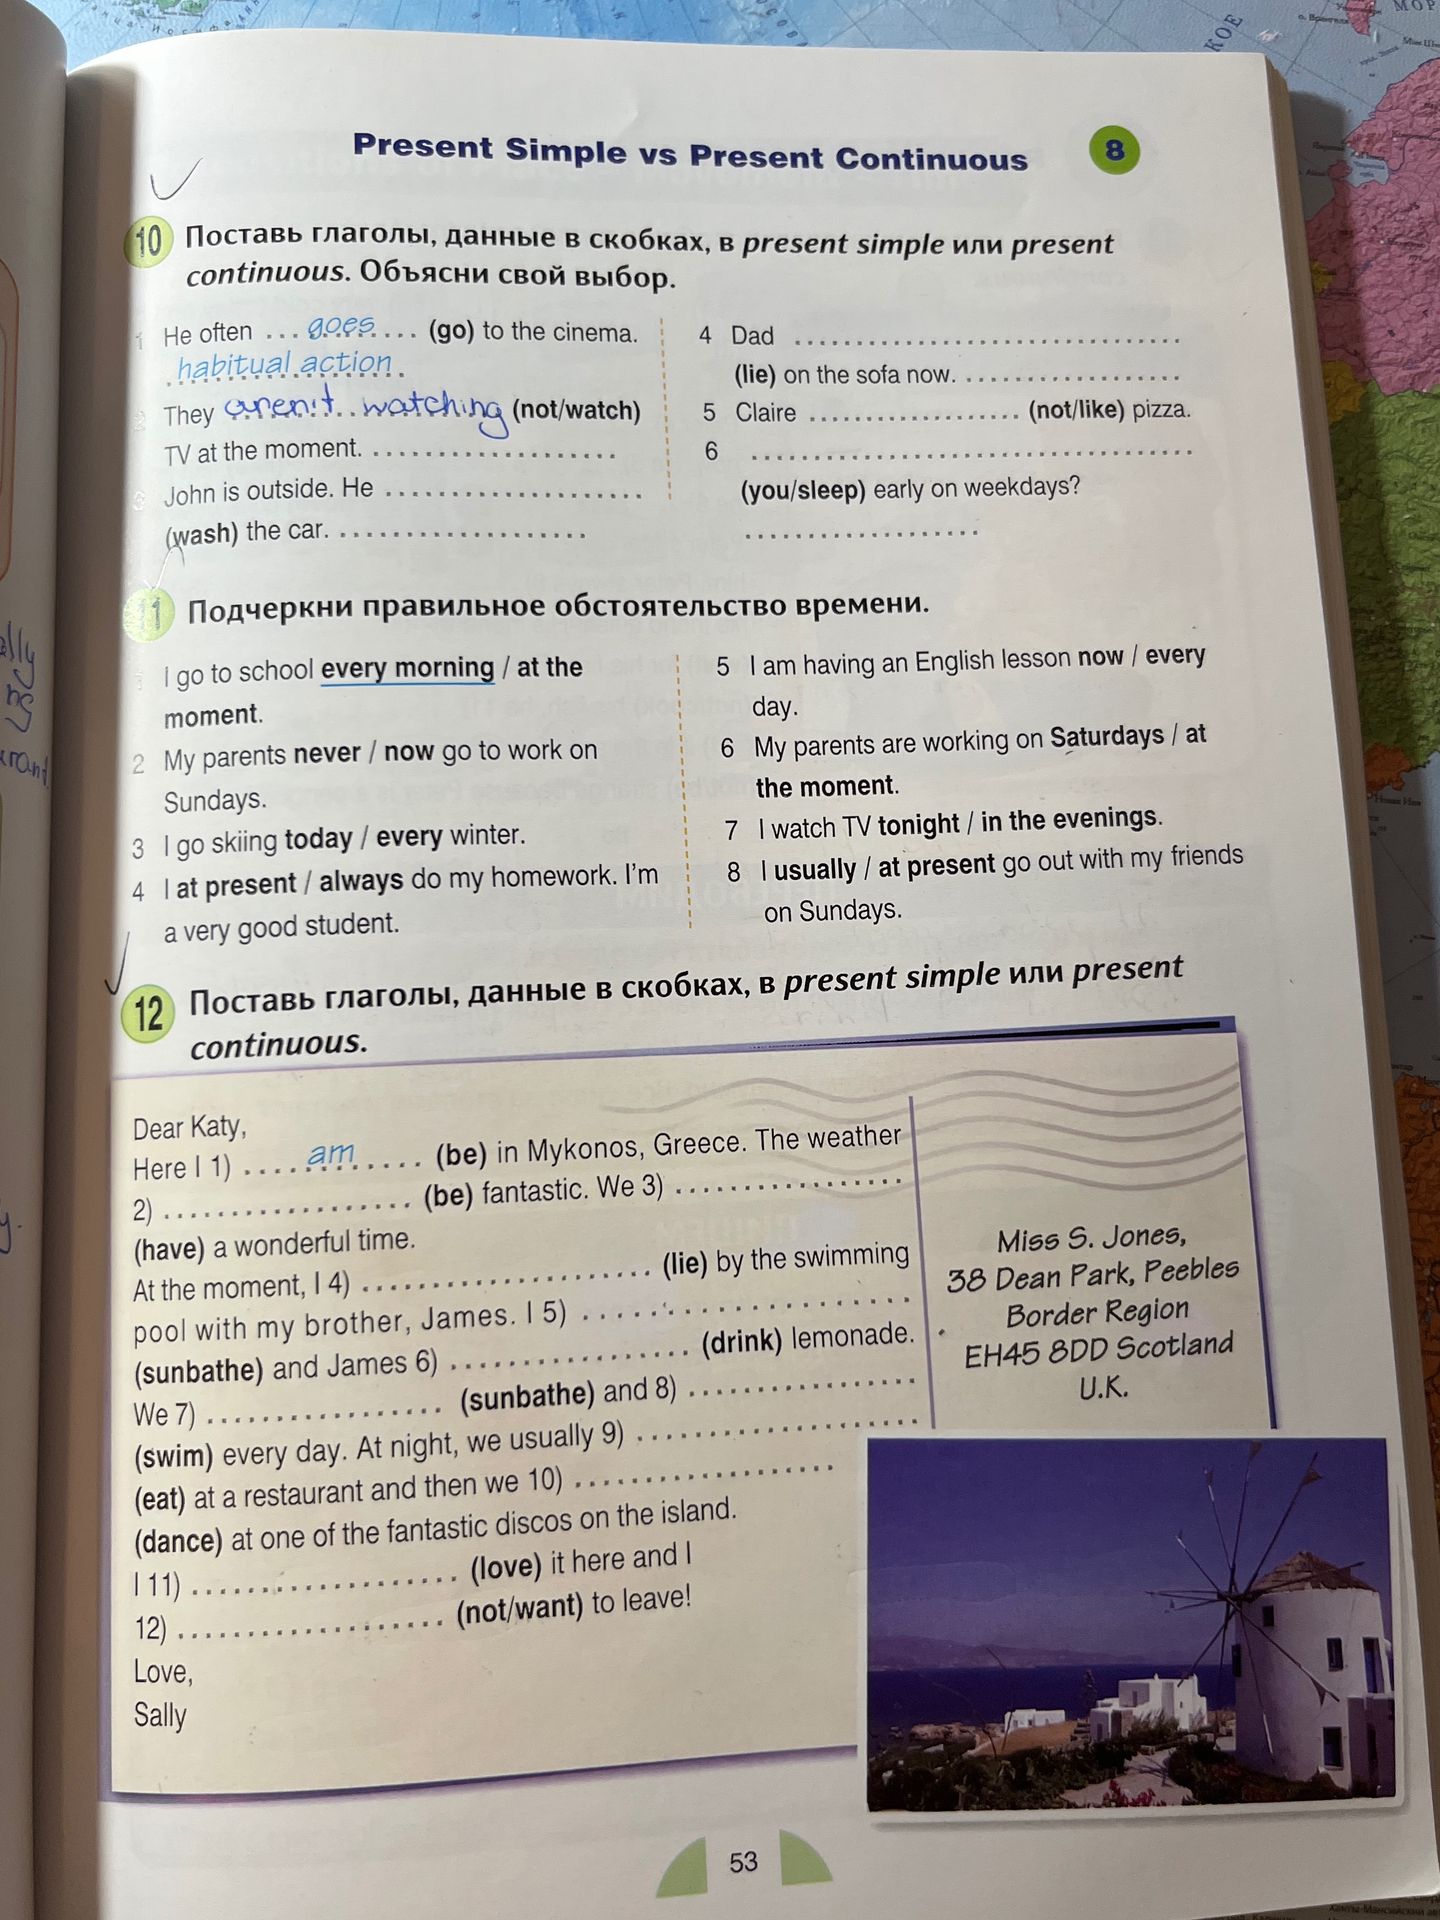 Present Simple vs Present Continuous 8
10 Поставь глаголы, данные в скобках, в present simple или present
continuous. Объясни свой выбор.
1 He often ... goes .... (go) to the cinema.
habitual action
2 They aren't watching (not/watch)
TV at the moment. ....................
3 John is outside. He ....................
(wash) the car. ....................
4 Dad ....................
(lie) on the sofa now. ....................
5 Claire .................... (not/like) pizza.
6 ....................
(you/sleep) early on weekdays?
....................
11 Подчеркни правильное обстоятельство времени.
1 I go to school every morning / at the
moment.
2 My parents never / now go to work on
Sundays.
3 I go skiing today / every winter.
4 I at present / always do my homework. I'm
a very good student.
5 I am having an English lesson now / every
day.
6 My parents are working on Saturdays / at
the moment.
7 I watch TV tonight / in the evenings.
8 I usually / at present go out with my friends
on Sundays.
12 Поставь глаголы, данные в скобках, в present simple или present
continuous.
Dear Katy,
Here I 1) .... am .... (be) in Mykonos, Greece. The weather
2) .................... (be) fantastic. We 3) ....................
(have) a wonderful time.
At the moment, I 4) .................... (lie) by the swimming
pool with my brother, James. I 5) ....................
(sunbathe) and James 6) .................... (drink) lemonade.
We 7) .................... (sunbathe) and 8) ....................
(swim) every day. At night, we usually 9) ....................
(eat) at a restaurant and then we 10) ....................
(dance) at one of the fantastic discos on the island.
I 11) .................... (love) it here and I
12) .................... (not/want) to leave!
Love,
Sally
Miss S. Jones,
38 Dean Park, Peebles
Border Region
EH45 8DD Scotland
U.K.
53